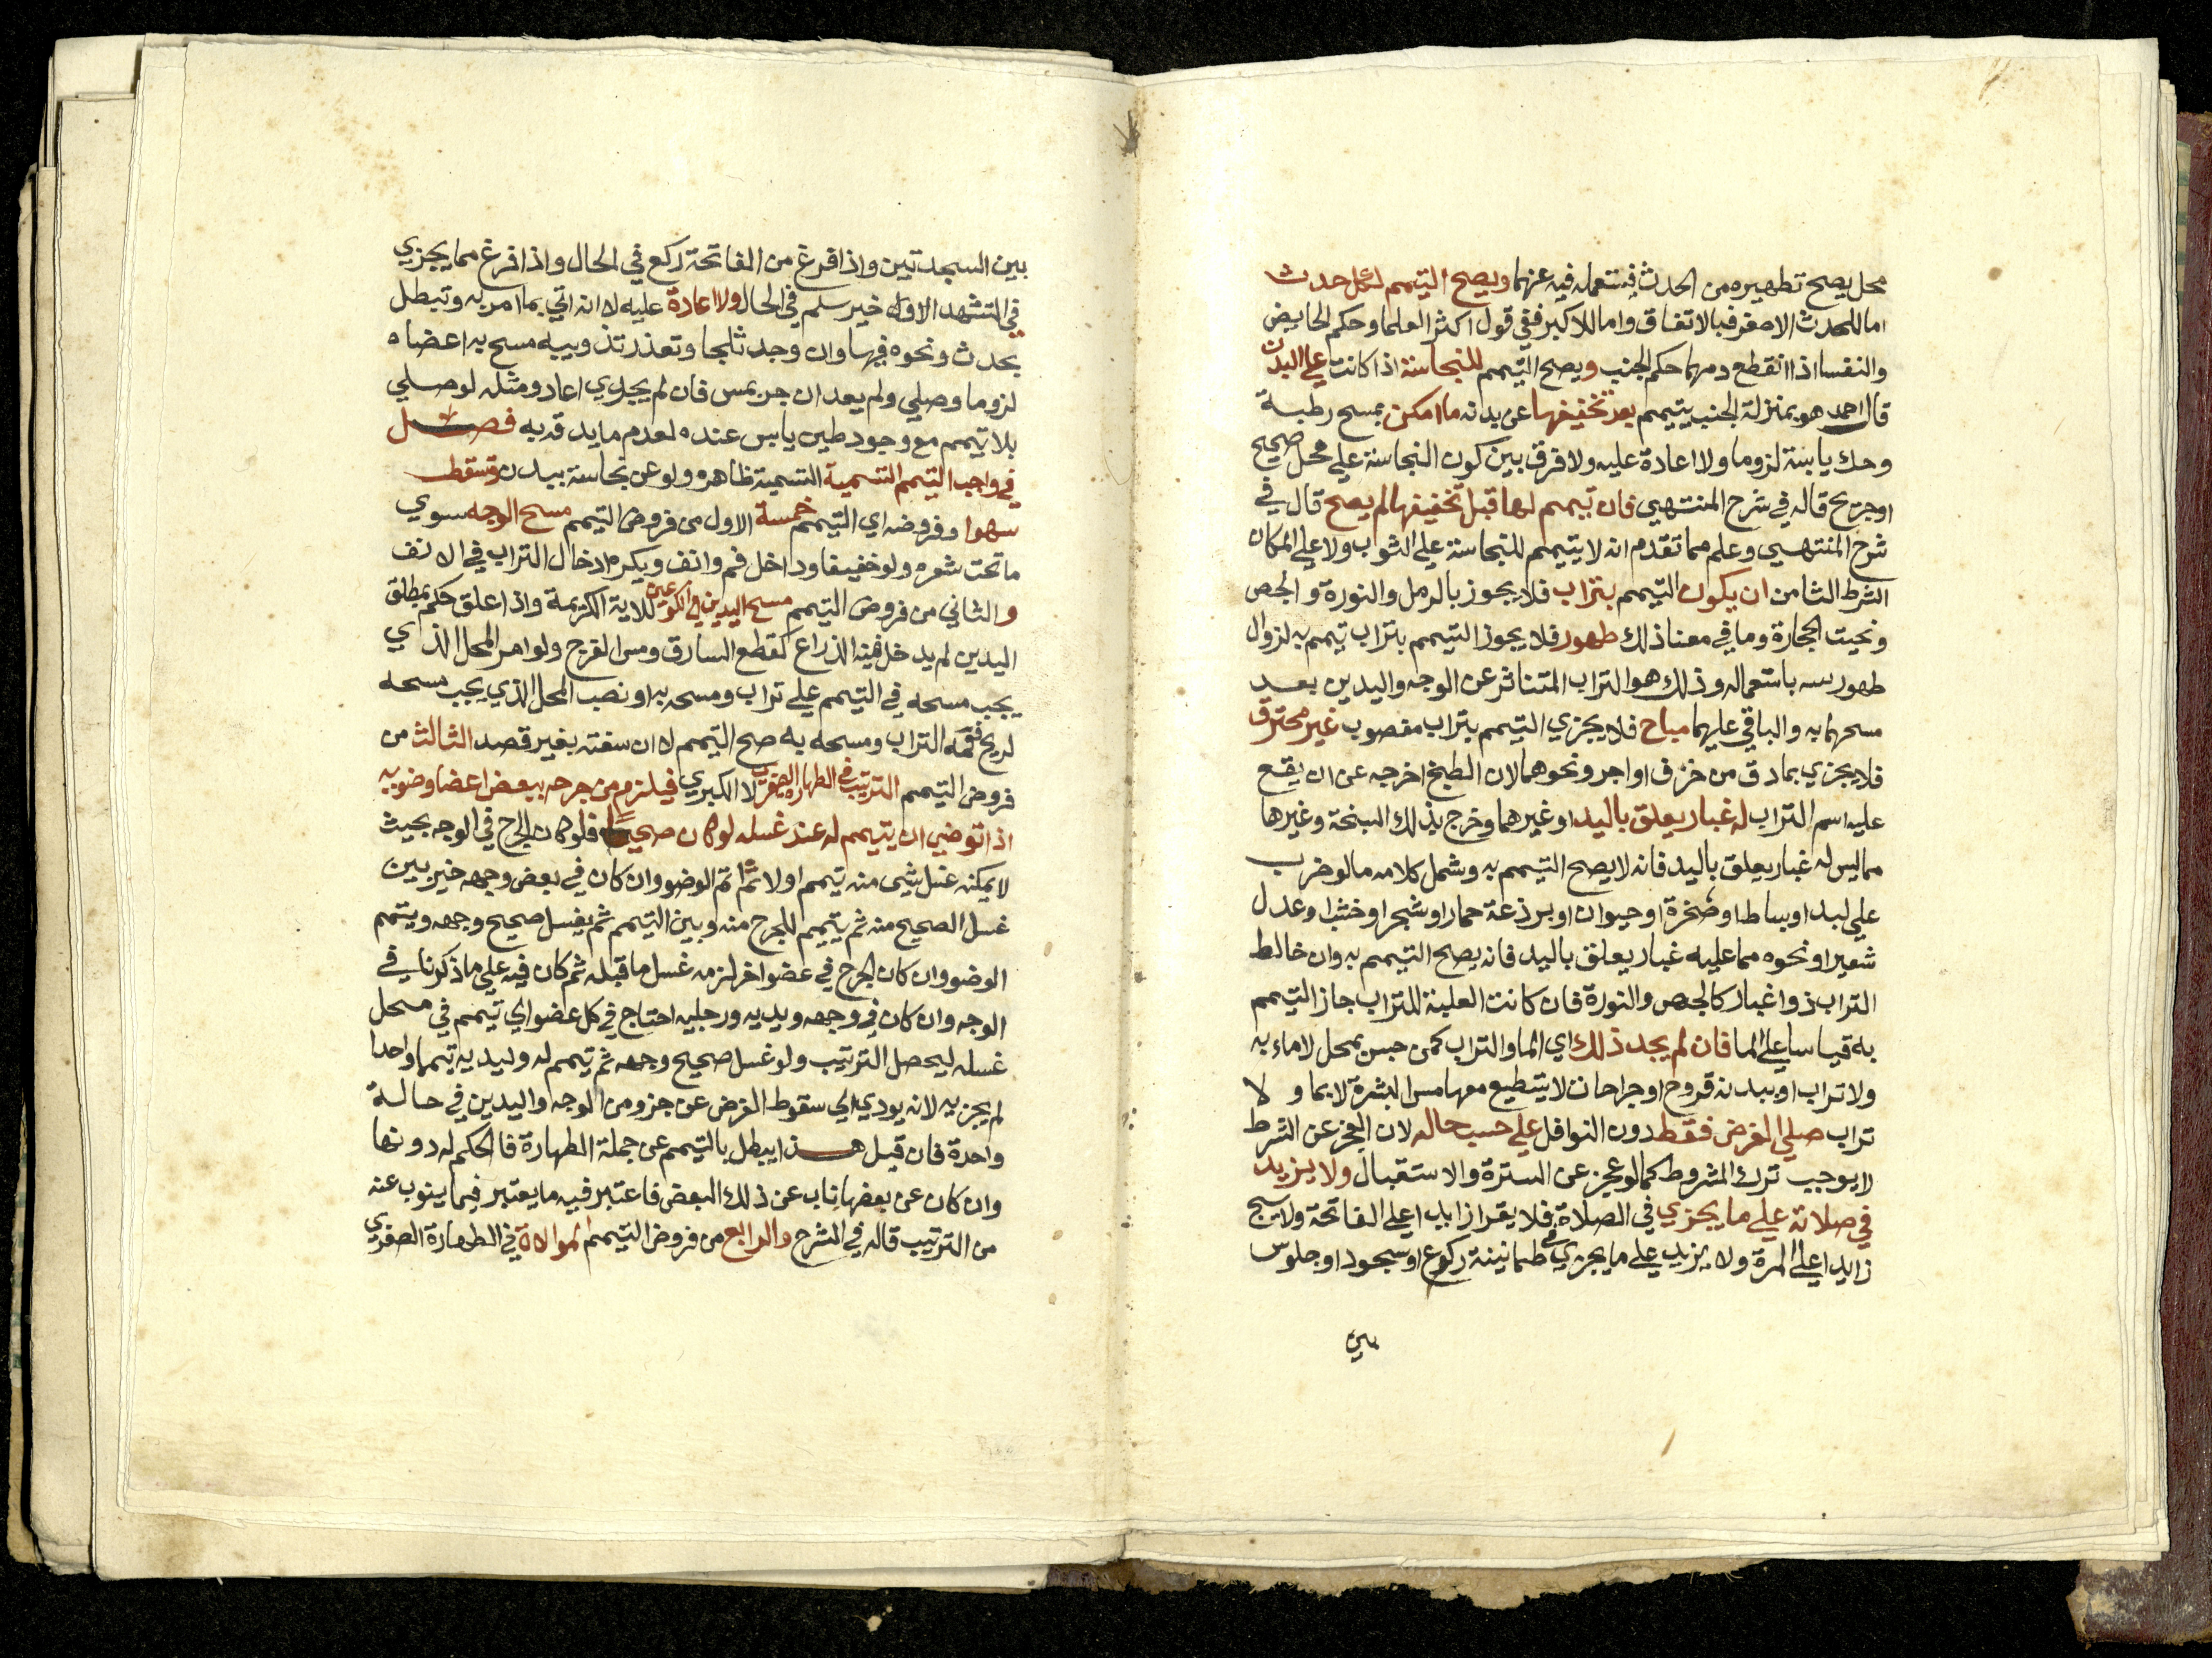 محل يصح تطهيره من الحدث فيستعمله فيه عنهما ويصح التيمم لكل حدث
اما للحدث الاصغر فبالاتفاق واما للاكبر ففي قول اكثر العلما وحكم الحايض
والنفسا اذا انقطع دمهما حكم الجنب ويصح التيمم للنجاسة اذا كانت علي البدن
قال احمد هو بمنزلة الجنب يتيمم بعد تخفيفها عن بدنه ما امكن بمسح رطبة
وحك يابسة لزوما ولا اعادة عليه ولا فرق بين كون النجاسة علي محل صحيح
او جريح قاله في شرح المنتهي فان تيمم لها قبل تخفيفها لم يصح قال في
شرح المنتهي وعلم مما تقدم انه لا يتيمم للنجاسة علي الثوب ولا علي المكان
الشرط الثامن ان يكون التيمم بتراب فلا يجوز بالرمل والنورة والجص
ونحيت الحجارة وما في معنا ذلك طهور فلا يجوز التيمم بتراب تيمم به لزوال
طهوريته باستعماله وذلك هو التراب المتناثر عن الوجه واليدين بعد
مسحهما به والباقي عليهما مباح فلا يجزي التيمم بتراب مغصوب غير محترق
فلا يجزي بما دق من خزف او اجر ونحوهما لان الطبخ اخرجه عن ان يقع
عليه اسم التراب له غبار يعلق باليد او غيرهما وخرج بذلك السبخة وغيرها
مما ليس له غبار يعلق باليد فانه لا يصح التيمم به وشمل كلامه ما لو ضرب
علي لبد او بساط او صخرة او حيوان او برذعة حمار او شجر او خشب او عدل
شعير او نحوه مما عليه غبار يعلق باليد فانه يصح التيمم به وان خالط
التراب ذو اغبار كالجص والنورة فان كانت الغلبة للتراب جاز التيمم
به قياسا علي الما فان لم يجد ذلك اي الما والتراب كمن حبس بمحل لا ماء به
ولا تراب او ببدنه قروح او جراحات لا يستطيع معها مس البشرة لا بما ولا
تراب صلي الفرض فقط دون النوافل علي حسب حاله لان العجز عن الشرط
لا يوجب ترك المشروط كما لو عجز عن السترة والاستقبال ولا يزيد
في صلاته علي ما يجزي في الصلاة فلا يقرا زايدا علي الفاتحة ولا يسبح
زايدا علي المرة ولا يزيد علي ما يجزي في طمانينة ركوع او سجود او جلوس
بين
بين السجدتين واذا فرغ من الفاتحة ركع في الحال واذا فرغ مما يجزي
في التشهد الاول خير سلم في الحال ولا اعادة عليه لانه اتي بما امر به وتبطل
بحدث ونحوه فيها وان وجد ثلجا وتعذر تذويبه مسح به اعضاه
لزوما وصلي ولم يعد ان جري بمس فان لم يجري اعاد ومثله لو صلي
بلا تيمم مع وجود طين يابس عنده لعدم ما يدقه به فصل
في واجب التيمم التسمية التسمية ظاهره ولو عن نجاسة ببدن وتسقط
سهوا وفروضه اي التيمم خمسة الاول من فروض التيمم مسح الوجه سوي
ما تحت شعره ولو خفيفا وداخل فم وانف ويكره ادخال التراب في الانف
والثاني من فروض التيمم مسح اليدين الي الكوعين للاية الكريمة واذا علق حكم بمطلق
اليدين لم يدخل فيه الذراع كقطع السارق ومس الفرج ولو امر المحل الذي
يجب مسحه في التيمم علي تراب ومسحه به او نصب المحل الذي يجب مسحه
لريح فعمه التراب ومسحه به صح التيمم لا ان سفته بغير قصد الثالث من
فروض التيمم الترتيب في الطهارة الصغري لا الكبري فيلزم من جرحه ببعض اعضا وضويه
اذا توضي ان يتيمم له عند غسله لو كان صحيحا فلو كان الجرح في الوجه بحيث
لا يمكنه غسل شيى منه تيمم اولا ثم اتم الوضو وان كان في بعض وجهه خير بين
غسل الصحيح منه ثم يتيمم للجرح منه وبين التيمم ثم يغسل صحيح وجهه ويتمم
الوضو وان كان الجرح في عضو اخر لزمه غسل ما قبله ثم كان فيه علي ما ذكرنا في
الوجه وان كان في وجهه ويديه ورجليه احتاج في كل عضو اي تيمم في محل
غسله ليحصل الترتيب ولو غسل صحيح وجهه ثم تيمم له وليديه تيمما واحدا
لم يجزيه لانه يودي الي سقوط الفرض عن جزو من الوجه واليدين في حالة
واحدة فان قيل هذا يبطل بالتيمم عن جملة الطهارة فالحكم له دونها
وان كان عن بعضها ناب عن ذلك البعض فاعتبر فيه ما يعتبر فيما ينوب عنه
من الترتيب قاله في الشرح والرابع من فروض التيمم الموالاة في الطهارة الصغري